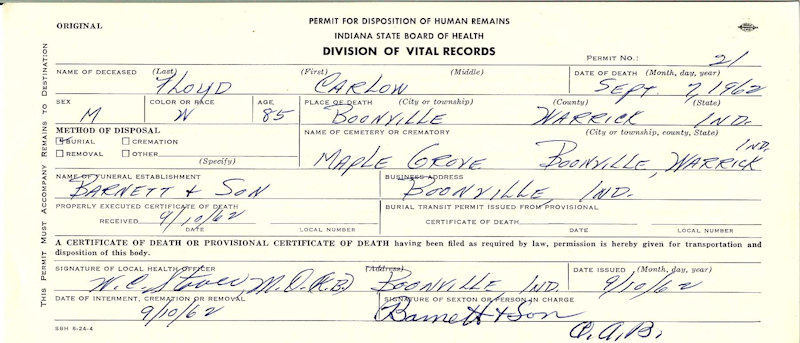 ORIGINAL
PERMIT FOR DISPOSITION OF HUMAN REMAINS
INDIANA STATE BOARD OF HEALTH
DIVISION OF VITAL RECORDS
PERMIT NO.: 21
THIS PERMIT MUST ACCOMPANY REMAINS TO DESTINATION
NAME OF DECEASED (Last) (First) (Middle) DATE OF DEATH (Month, day, year)
FLOYD CARLOW SEPT. 7, 1962
SEX COLOR OR RACE AGE PLACE OF DEATH (City or township) (County) (State)
M W 85 BOONVILLE WARRICK IND.
METHOD OF DISPOSAL NAME OF CEMETERY OR CREMATORY (City or township, county, State)
BURIAL CREMATION
REMOVAL OTHER
(Specify)
MAPLE GROVE BOONVILLE, WARRICK IND.
NAME OF FUNERAL ESTABLISHMENT BUSINESS ADDRESS
BARNETT & SON BOONVILLE, IND.
PROPERLY EXECUTED CERTIFICATE OF DEATH BURIAL TRANSIT PERMIT ISSUED FROM PROVISIONAL
RECEIVED 9/10/62 CERTIFICATE OF DEATH
DATE LOCAL NUMBER DATE LOCAL NUMBER
A CERTIFICATE OF DEATH OR PROVISIONAL CERTIFICATE OF DEATH having been filed as required by law, permission is hereby given for transportation and
disposition of this body.
SIGNATURE OF LOCAL HEALTH OFFICER (Address) DATE ISSUED (Month, day, year)
W. C. M.D. (R.B.) BOONVILLE, IND. 9/10/62
DATE OF INTERMENT, CREMATION OR REMOVAL SIGNATURE OF SEXTON OR PERSON IN CHARGE
9/10/62 Barnett & Son
O.A.B.
SBH 6-24-4